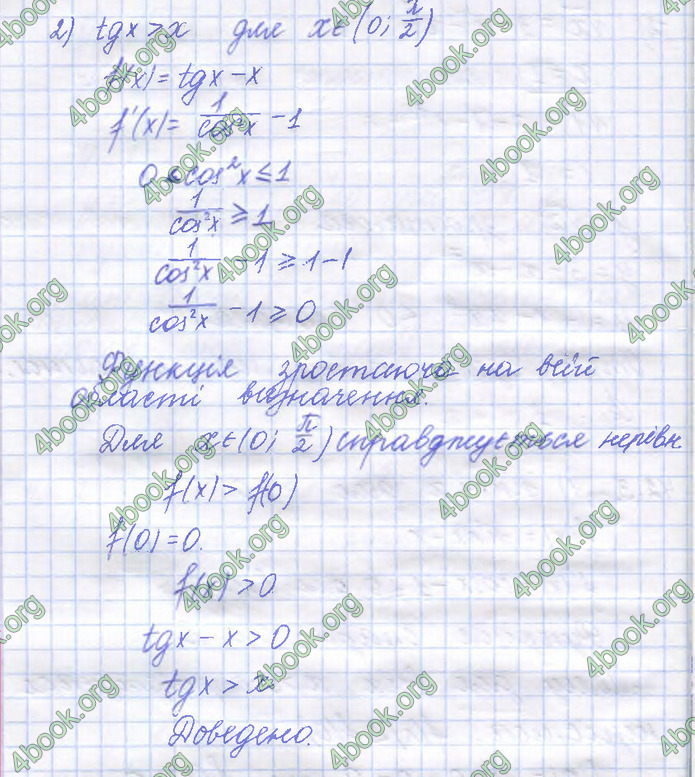 2) tgx > x для x ∈ (0; π/2)
f(x) = tgx − x
f'(x) = 1/cos²x − 1
0 < cos²x ≤ 1
1/cos²x ≥ 1
1/cos²x − 1 ≥ 1 − 1
1/cos²x − 1 ≥ 0
Функція зростаюча на всій
області визначення.
Для x ∈ (0; π/2) справджується нерівн
f(x) > f(0)
f(0) = 0.
f(x) > 0
tgx − x > 0
tgx > x
Доведено.
4book.org